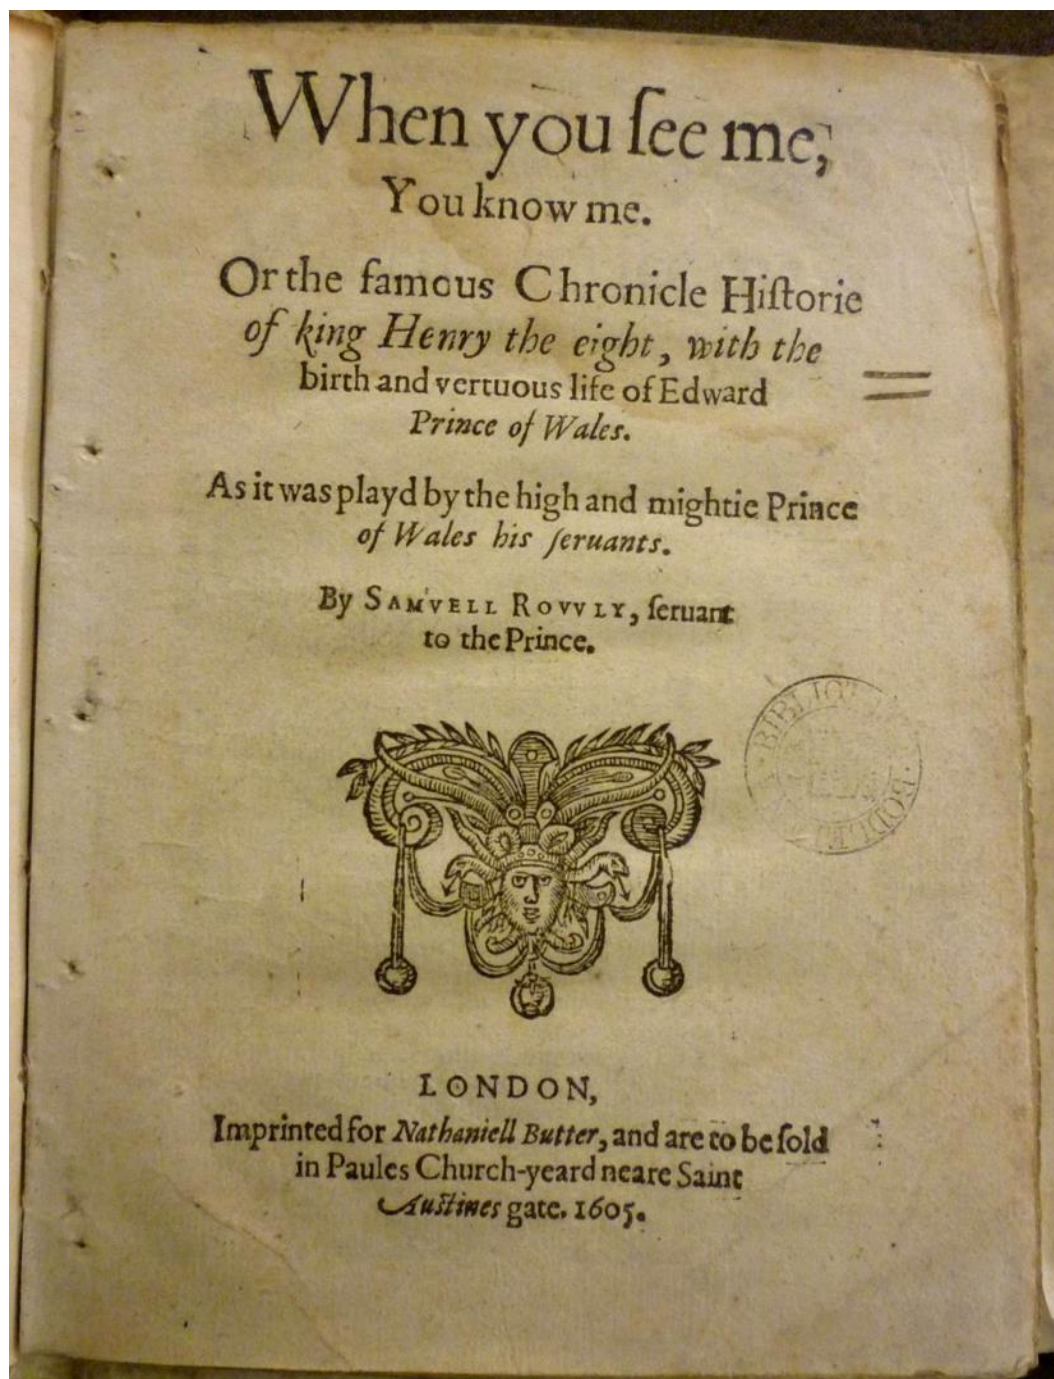 When you ſee me,
You know me.
Or the famous Chronicle Hiſtorie
of king Henry the eight, with the
birth and vertuous life of Edward
Prince of Wales.
As it was playd by the high and mightie Prince
of Wales his ſeruants.
By SAMVELL ROVVLY, ſeruant
to the Prince.
LONDON,
Imprinted for Nathaniell Butter, and are to be ſold
in Paules Church-yeard neare Saint
Auſtines gate. 1605.